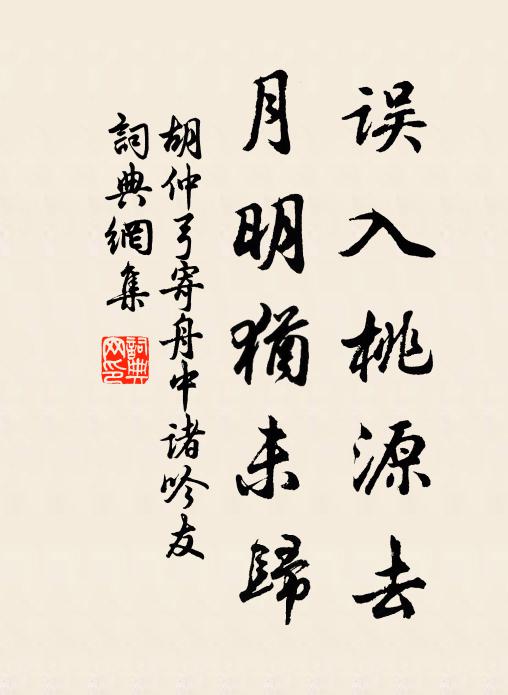 误入桃源去
月明猶未歸
胡仲弓寄舟中诸吟友
詞典網集
詞典网印